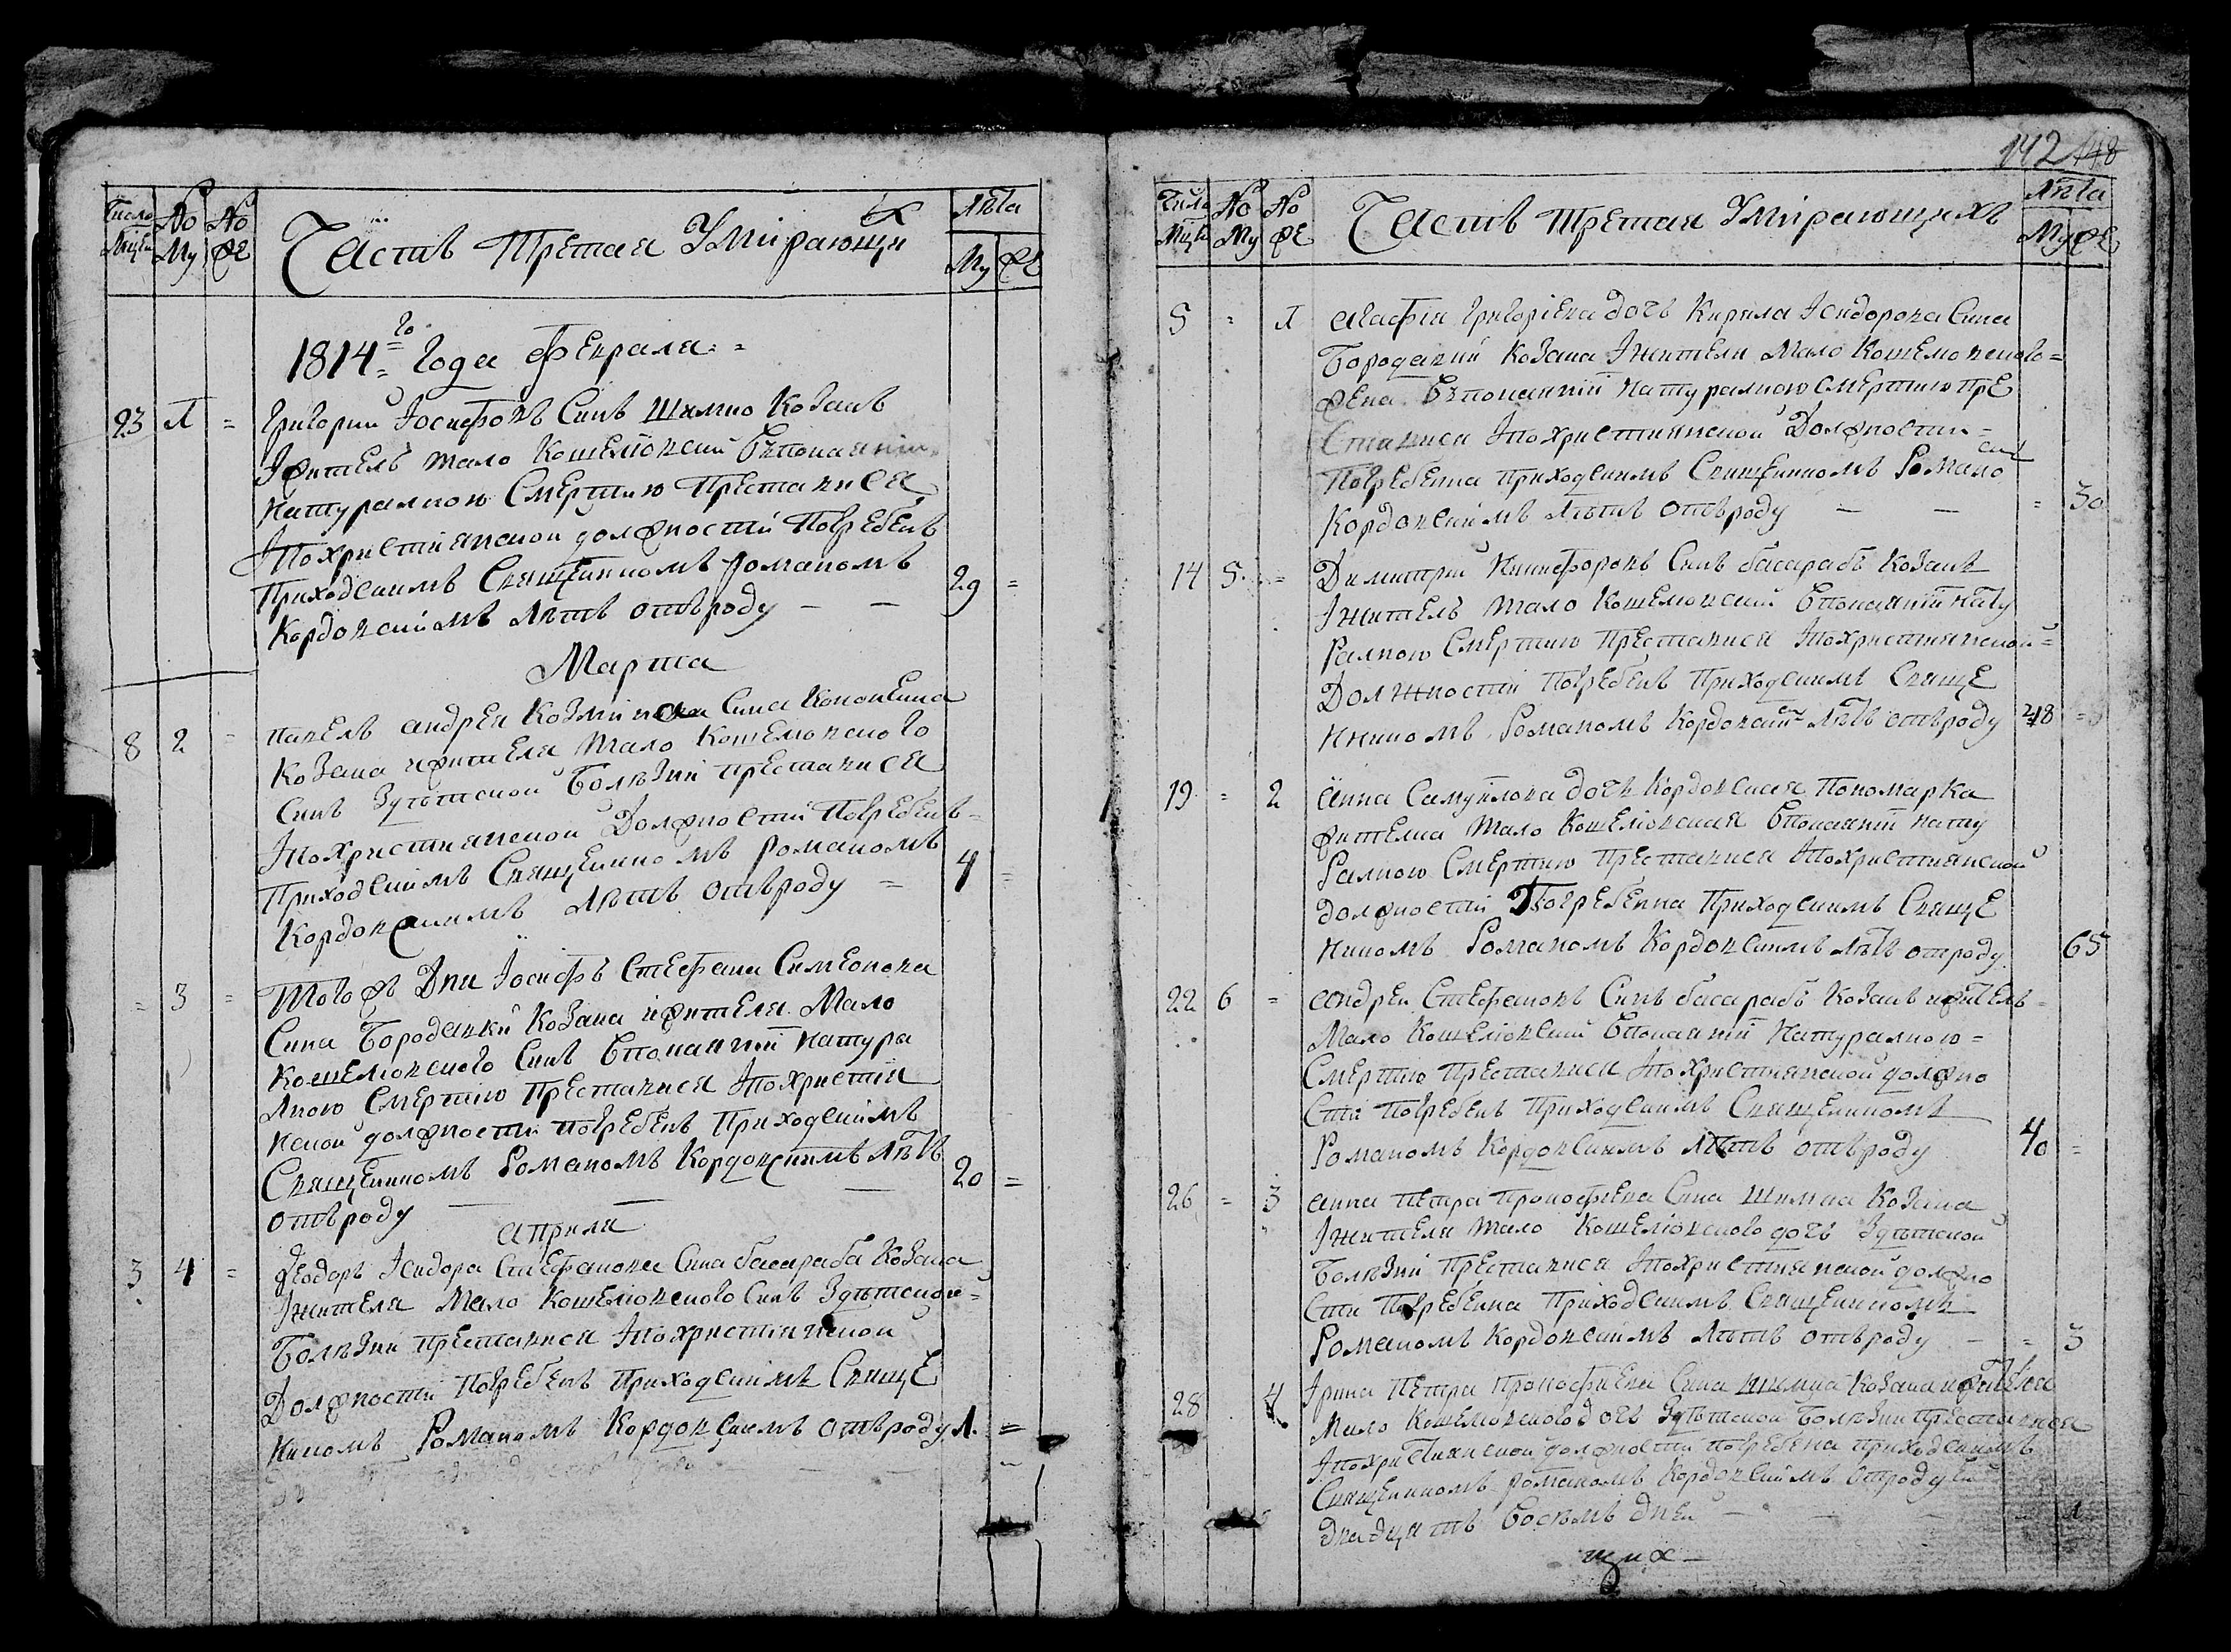 Число Мцеи
No Му
No фе
Часть третая Умирающи х
Лѣта
Му фе
1814го года Февраля
23 1 = Григории Иосифовъ Синъ Шимко Козакъ
Iжитель Мало Кошелювский Впокаянiи
Натуралною Смертию Преставися
Iпохристиянской должности Погребенъ
Приходскимъ Священникомъ Романомъ
Кордовскимъ Лѣтъ отъ роду — — 29 =
Марта
8 2 = Павелъ андрея Козмiнова Сина Кононенка
Козака жителя Мало Кошелювского
Синъ Здѣтской Болѣзни преставися
Iпохристиянской Должности Погребенъ
Приходскимъ Священникомъ Романомъ
Кордовскимъ Лѣтъ отъ роду = 4 =
= 3 = Того жъ Дни Iосифъ Стефана Симеонова
Сина Бородавки Козака жителя Мало
Кошелювского Синъ Впокаянiи Натура
лною Смертию Преставися Iпохристия
нской должности погребенъ Приходскимъ
Священникомъ Романомъ Кордовскимъ Лѣтъ
отъ роду — — — 20 =
априля
3 4 = Феодоръ Iсидора Стефанова Сина басараба Козака
Iжителя Мало Кошелювского Синъ Здѣтской
Болѣзни преставися Iпохристiянской
Должности Погребенъ Приходскимъ Свяще
нникомъ Романомъ Кордовскимъ отъ роду 1. =
142 148
Число Мцеи
No Му
No фе
Часть третая Умирающихъ
Лѣта
Му фе
5 = 1 агафiя григорiева дочь Кирила Iсидорова Сина
Бородавки Козака Iжителя Мало Кошелювского
жена Впокаянiи натуралною смертию пре
ставися Iпохристиянской Должности
Погребенна приходскимъ Священникомъ Романо
Кордовскимъ Лѣтъ отъ роду — — = 30
14 5 = Димитрий Никифоровъ Синъ басарабъ Козакъ
Iжитель Мало Кошелювский Впокаянiи Нату
ралною Смертию преставися Iпохристиянской
Должности Погребенъ Приходскимъ Свяще
нникомъ Романомъ Кордовским Лѣтъ отъ роду 48 =
19 = 2 анна Самуйлова дочь Кордовская Пономарка
жителка Мало Кошелювская Впокаянiи нату
ралною Смертию преставися Iпохристиянской
должности Погребенна Приходскимъ Свяще
нникомъ Романомъ Кордовскимъ лѣтъ отроду 65
22 6 = андрей Стефановъ Синъ басарабъ Козакъ житель
Мало Кошелювский Впокаянiи Натуралною
Смертию Преставися Iпохристиянской должно
сти Погребенъ Приходскимъ Священникомъ
Романомъ Кордовскимъ Лѣтъ отъ роду 40 =
26 = 3 анна Петра Прокофиева Сина Шимка Козака
Iжителя Мало Кошелювского дочь Здѣтской
Болѣзни Преставися Iпохристиянской должно
сти Погребенна Приходскимъ Священникомъ
Романомъ Кордовскимъ Лѣтъ отъ роду — = 3
28 4 Iрина Петра Прокофиева Сина шимка Козака жителя
Мало Кошелювского дочь Здѣтской Болѣзни преставися
Iпохристиянской должности погребена приходскимъ
Священникомъ Романомъ Кордовскимъ отроду ей
двадцять Восѣмъ дней — 1
щих